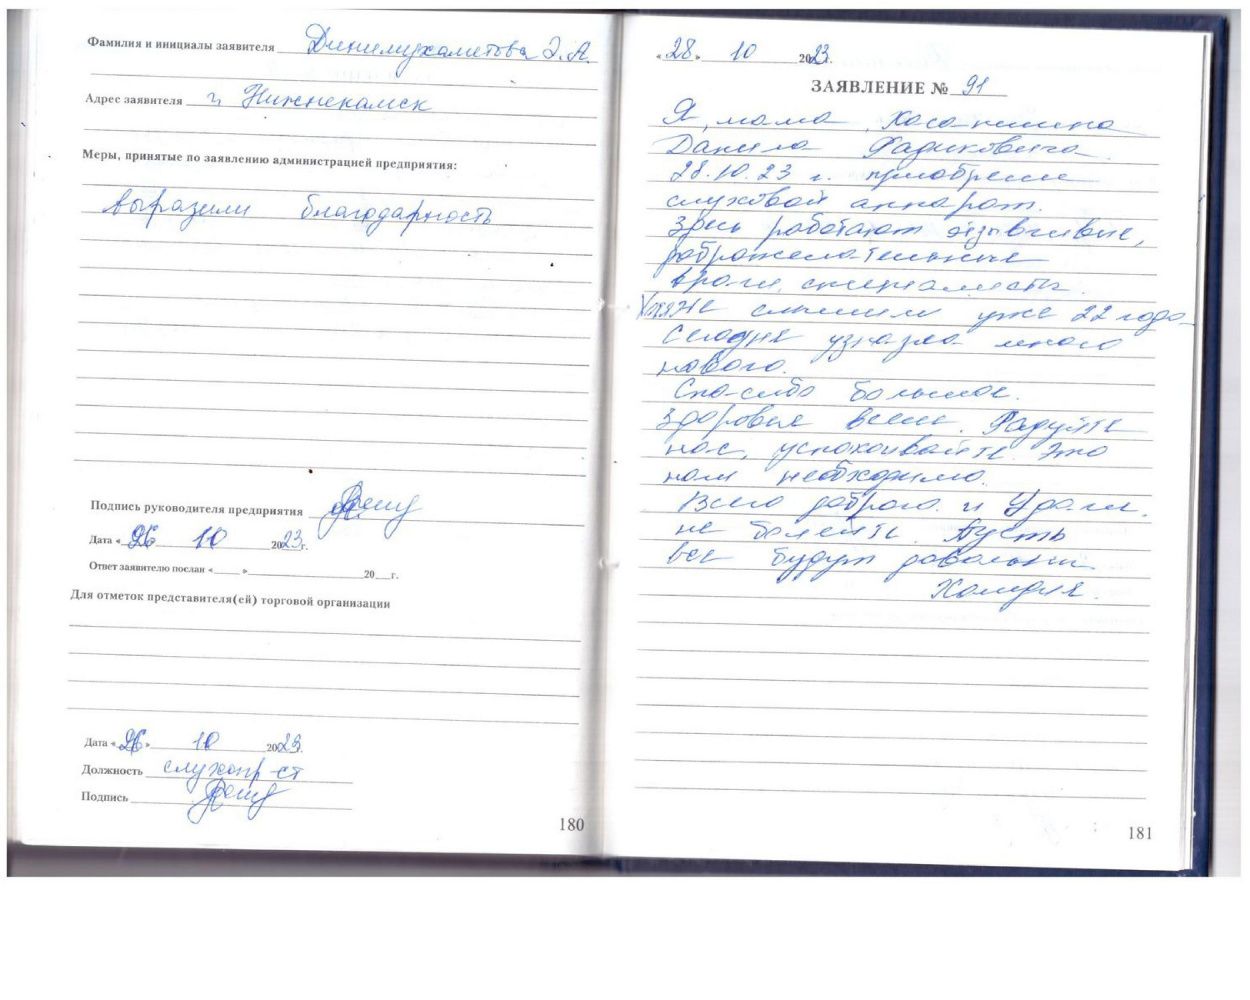 Фамилия и инициалы заявителя Динмухаметова Э.А.
Адрес заявителя г. Нижнекамск
Меры, принятые по заявлению администрацией предприятия:
выразили благодарность
Подпись руководителя предприятия
Дата «26 10 2023г.
Ответ заявителю послан «_____»_____20___г.
Для отметок представителя(ей) торговой организации
Дата «26» 10 2023г.
Должность слухопр-ст
Подпись
180
«28» 10 2023г.
ЗАЯВЛЕНИЕ № 91
Я, мама, Хасаншина
Данила Фадисовича
28.10.23 г. приобрели
слуховой аппарат.
Здесь работают отзывчивые,
доброжелательные
врачи, специалисты.
слышим уже 22 года
Сегодня узнала много
нового.
Спасибо большое.
Здоровья всем. Радуйте
нас, успокаивайте. Это
нам необходимо.
Всего доброго и Удачи.
не болейте. Пусть
все будут довольны
181